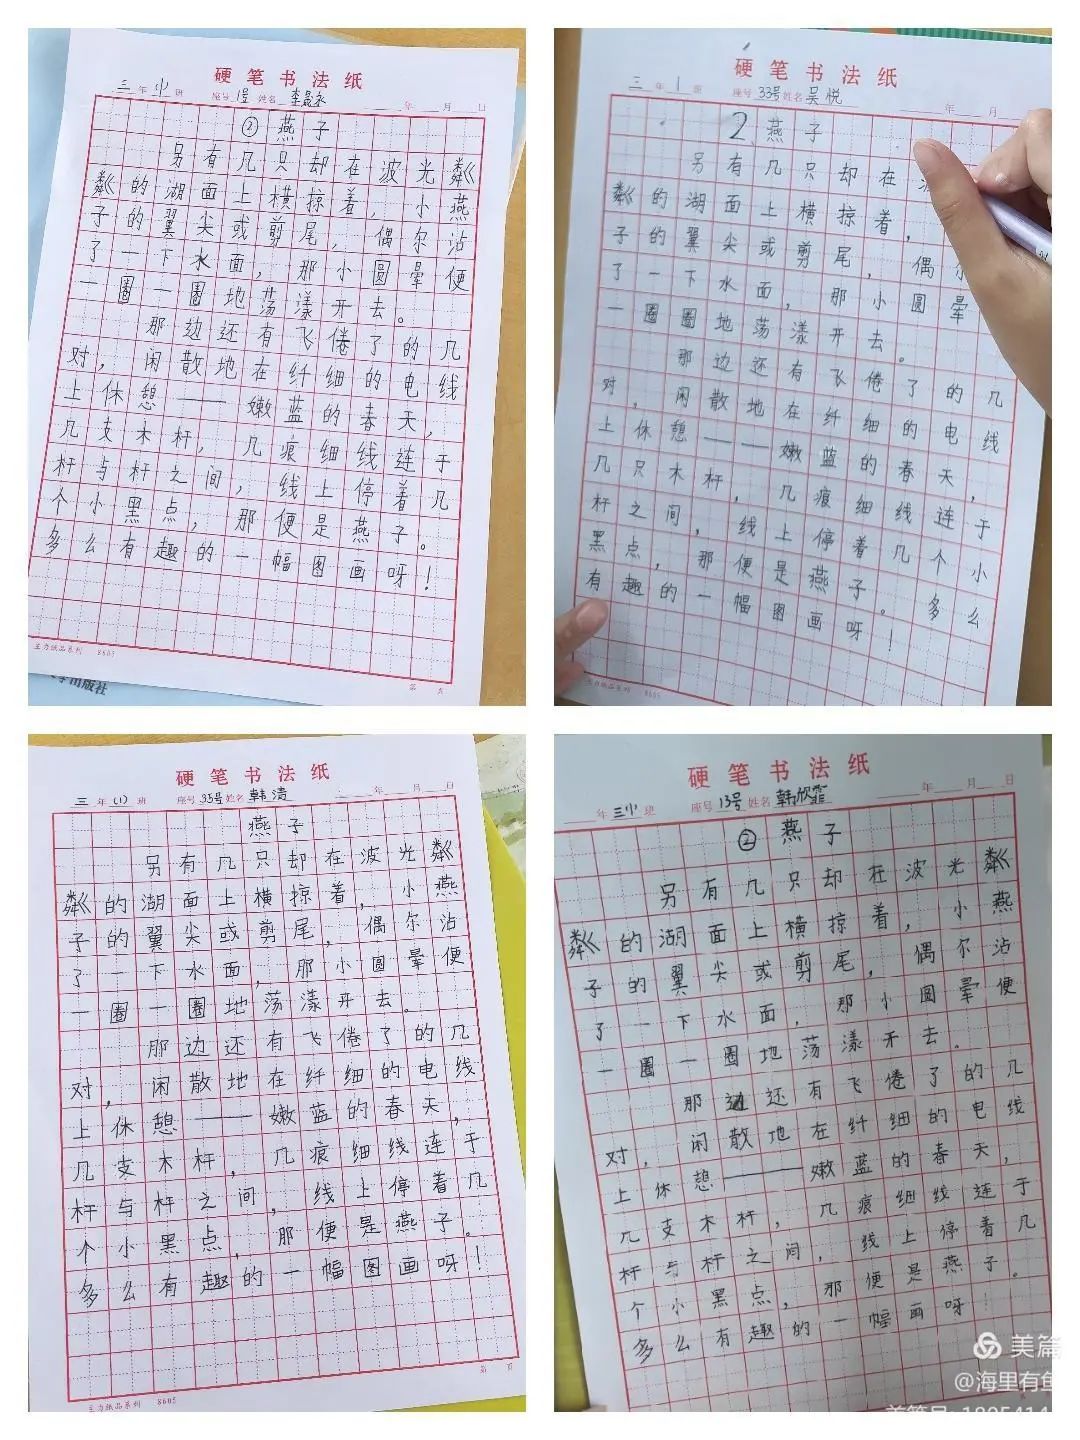 硬笔书法纸
三年(1)班 座号1号姓名李晟永 年 月 日
② 燕子
另有几只却在波光粼
粼的湖面上横掠着，小燕
子的翼尖或剪尾，偶尔沾
了一下水面，那小圆晕便
一圈一圈地荡漾开去。
那边还有飞倦了的几
对，闲散地在纤细的电线
上休憩——嫩蓝的春天，
几支木杆，几痕细线连于
杆与杆之间，线上停着几
个小黑点，那便是燕子。
多么有趣的一幅图画呀！
主力纸品系列 8605
第 页
学出版社
硬笔书法纸
三年1班 座号33号姓名吴悦 年 月 日
2、燕子
另有几只却在
粼的湖面上横掠着，
子的翼尖或剪尾，偶尔
了一下水面，那小圆晕
一圈圈地荡漾开去。
那边还有飞倦了的几
对，闲散地在纤细的电线
上休憩——嫩蓝的春天，
几只木杆，几痕细线连于
杆之间，线上停着几个小
黑点，那便是燕子。多么
有趣的一幅图画呀！
主力纸品系列 8605
硬笔书法纸
三年(1)班 座号35号姓名韩清 年 月 日
燕子
另有几只却在波光粼
粼的湖面上横掠着，小燕
子的翼尖或剪尾，偶尔沾
了一下水面，那小圆晕便
一圈一圈地荡漾开去。
那边还有飞倦了的几
对，闲散地在纤细的电线
上休憩——嫩蓝的春天，
几支木杆，几痕细线连于
杆与杆之间，线上停着几
个小黑点，那便是燕子。
多么有趣的一幅图画呀！
主力纸品系列 8605
第 页
硬笔书法纸
年三(1)班 座号13号姓名韩欣霜 年 月 日
② 燕子
另有几只却在波光粼
粼的湖面上横掠着，小燕
子的翼尖或剪尾，偶尔沾
了一下水面，那小圆晕便
一圈一圈地荡漾开去。
那边还有飞倦了的几
对，闲散地在纤细的电线
上休憩——嫩蓝的春天，
几支木杆，几痕细线连于
杆与杆之间，线上停着几
个小黑点，那便是燕子。
多么有趣的一幅画呀！
美篇
@海里有鱼